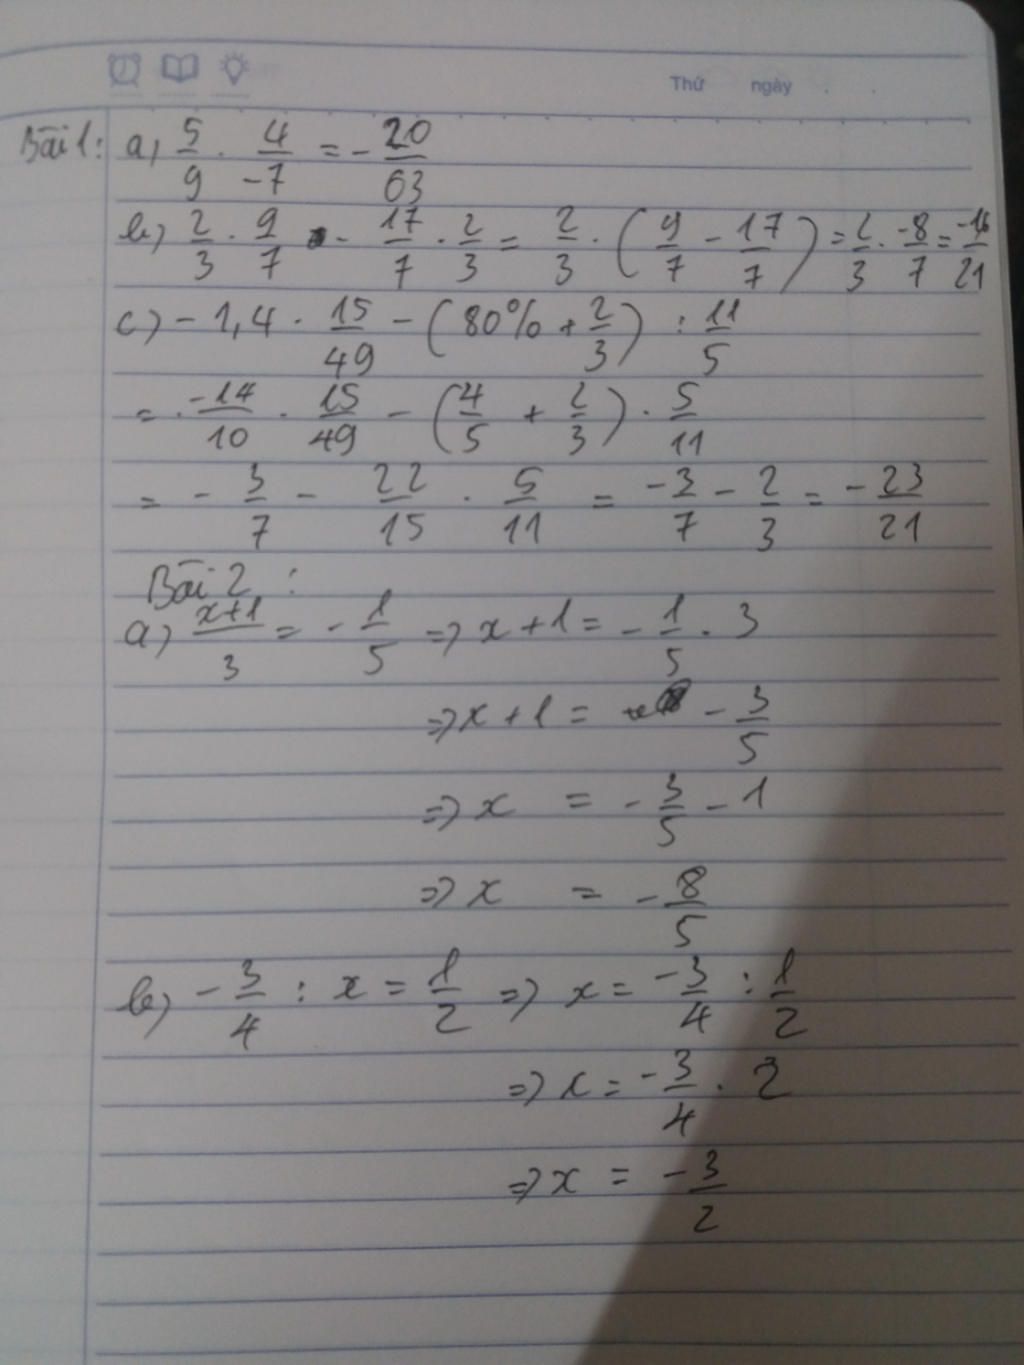 Thứ ngày
Bài 1: a, 5/9 . 4/-7 = - 20/63
b) 2/3 . 9/7 - 17/7 . 2/3 = 2/3 . (9/7 - 17/7) = 2/3 . -8/7 = -16/21
c) - 1,4 . 15/49 - (80% + 2/3) : 11/5
= -14/10 . 15/49 - (4/5 + 2/3) . 5/11
= - 3/7 - 22/15 . 5/11 = -3/7 - 2/3 = - 23/21
Bài 2 :
a) x+1/3 = - 1/5 => x + 1 = - 1/5 . 3
=> x + 1 = - 3/5
=> x = - 3/5 - 1
=> x = - 8/5
b) - 3/4 : x = 1/2 => x = -3/4 : 1/2
=> x = -3/4 . 2
=> x = -3/2